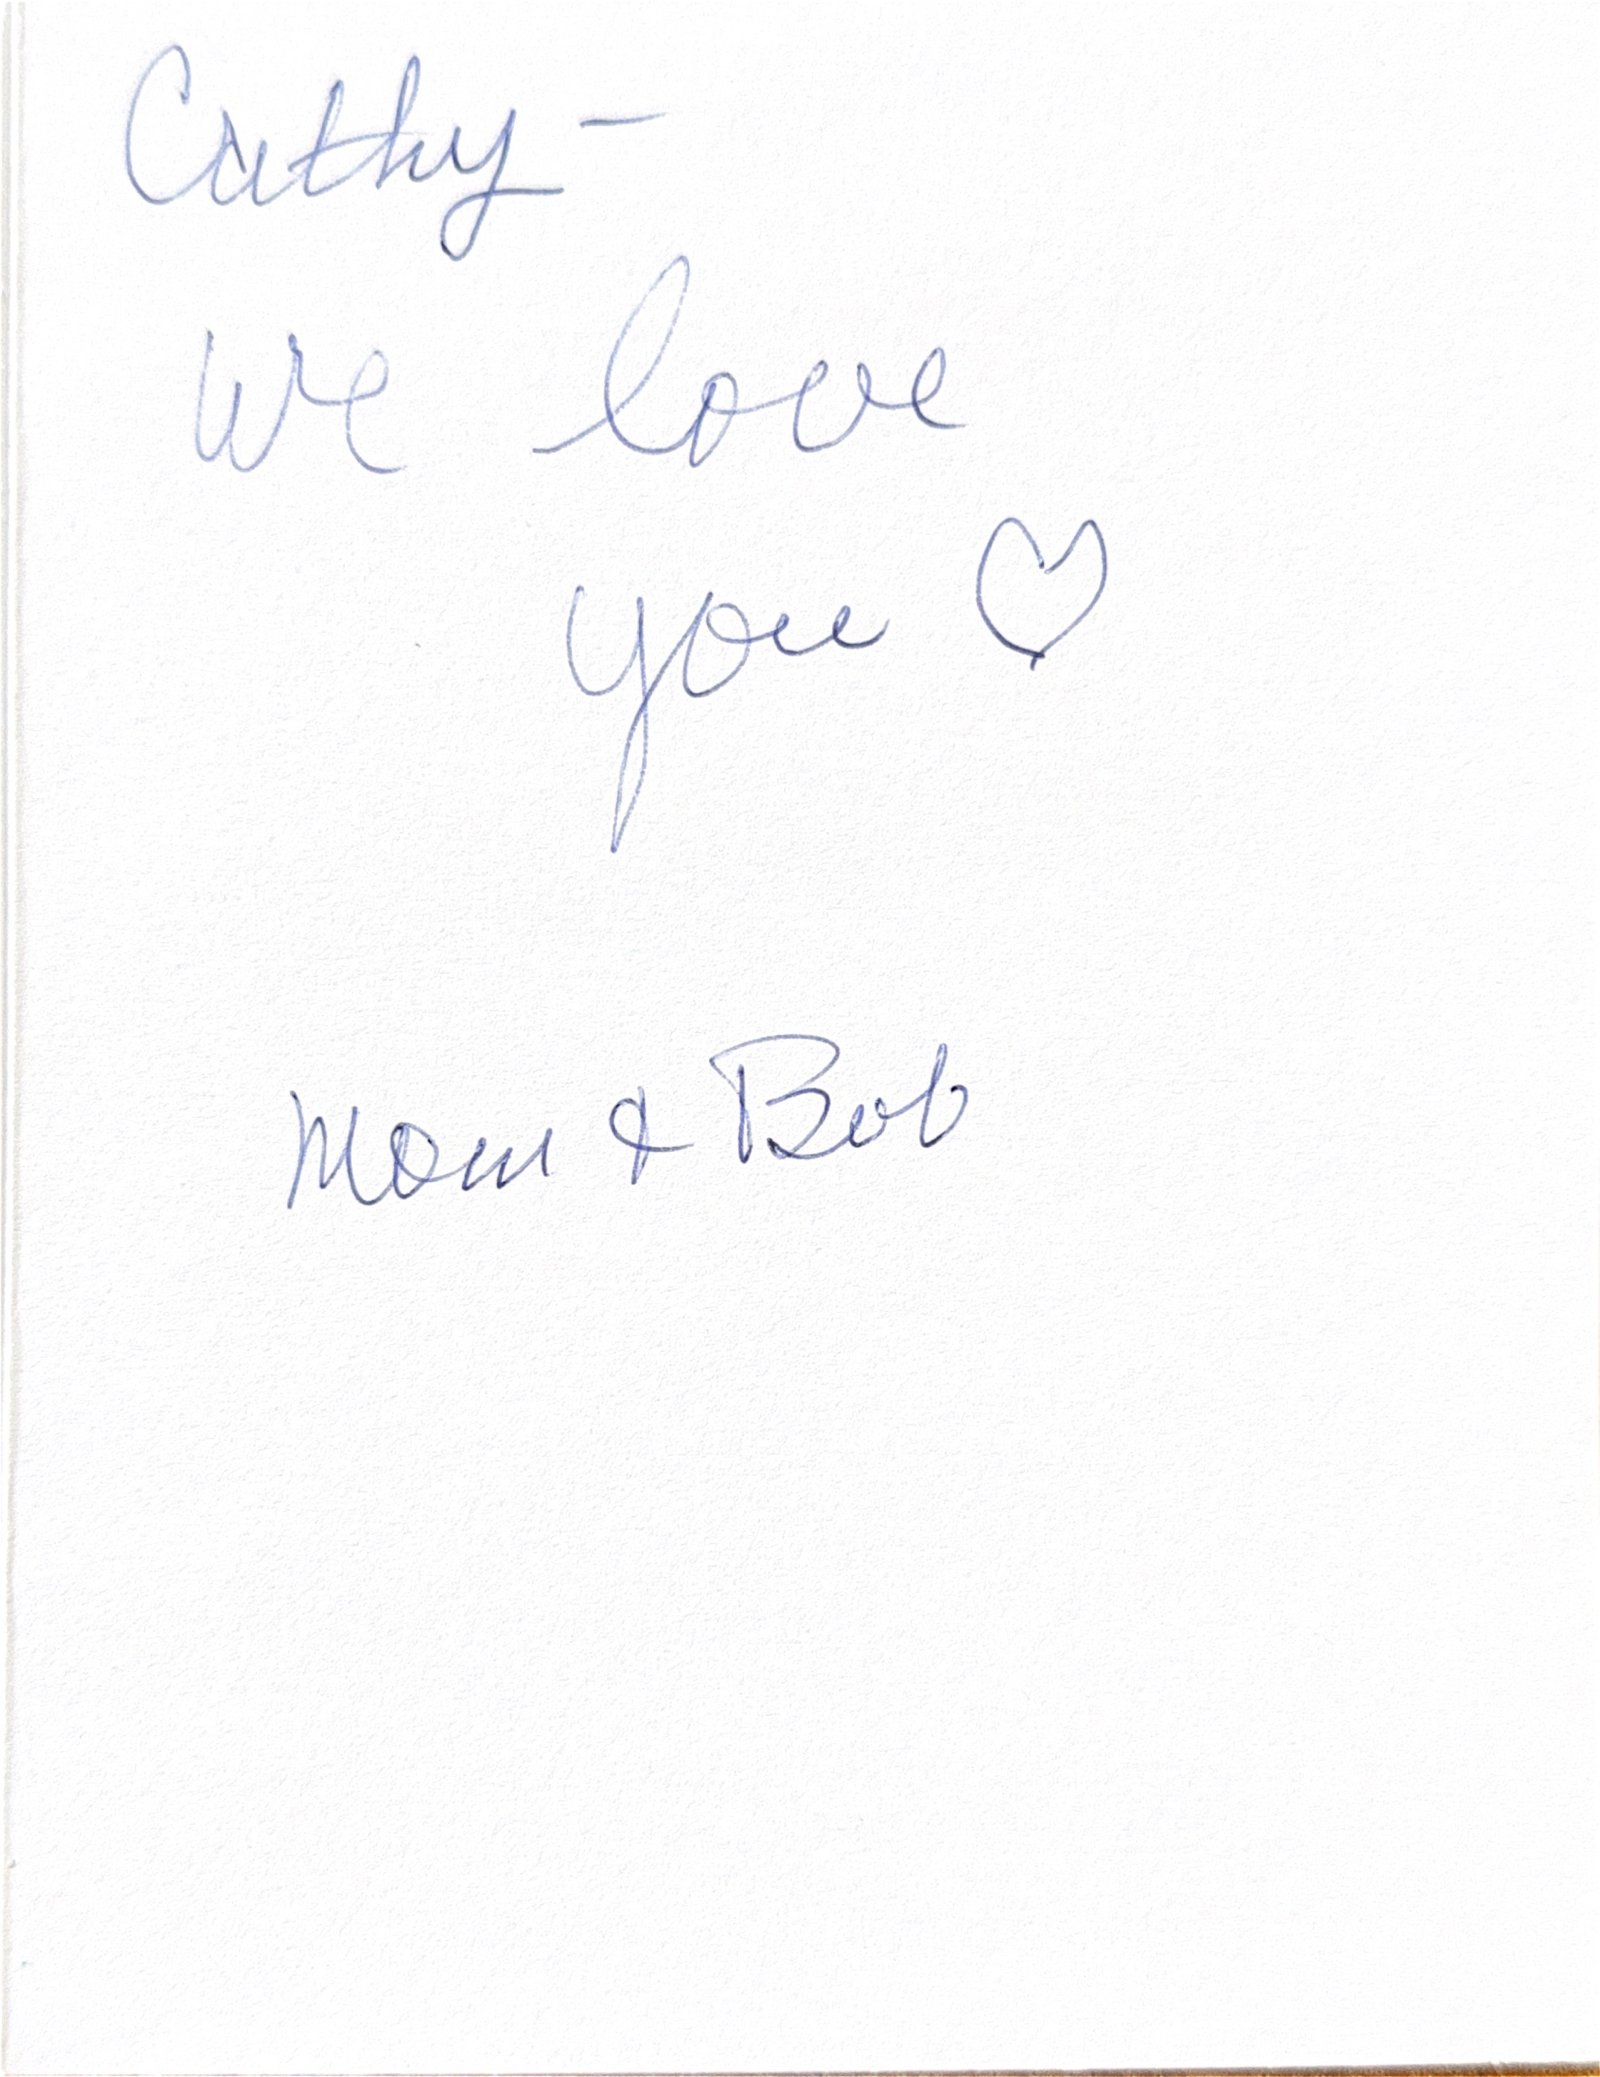 Cathy -
We love
you ♡
Mom & Bob